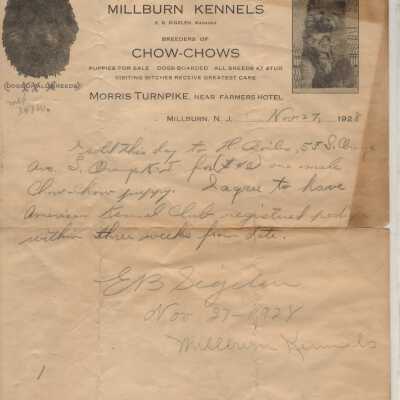 MILLBURN KENNELS
BREEDERS OF
CHOW-CHOWS
PUPPIES FOR SALE DOGS BOARDED ALL BREEDS AT STUD
VISITING BITCHES RECEIVE GREATEST CARE
(DOGS OF ALL BREEDS)
MORRIS TURNPIKE, NEAR FARMERS HOTEL
MILLBURN, N. J. Nov 27, 1928
I sold this day to H 58 S.
Ave. S. for one male
Chow-chow puppy. I agree to have
American Kennel Club registered
within three weeks from date.
E B
Nov 27-1928
Millburn Kennels